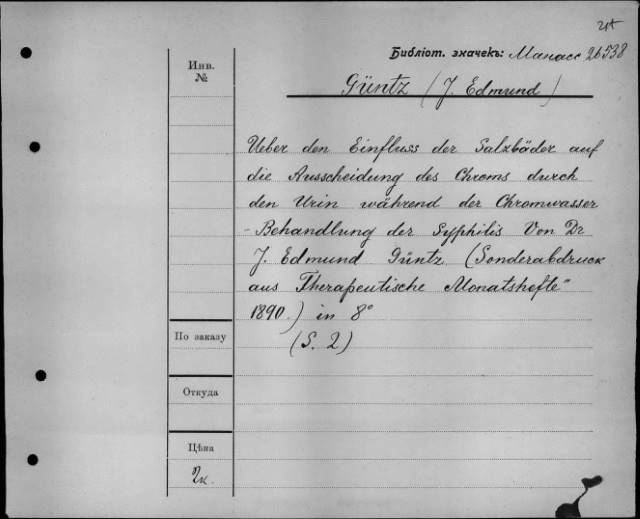 Библіот. значекъ: Манасс 26538
Инв.
№
Güntz (J. Edmund)
Ueber den Einfluss der Salzbäder auf
die Ausscheidung des Chroms durch
den Urin während der Chromwasser
-Behandlung der Syphilis Von Dr
J. Edmund Güntz (Sonderabdruck
aus Therapeutische Monatshefte"
1890.) in 8°
(S. 2)
По заказу
Откуда
Цѣна
2к.